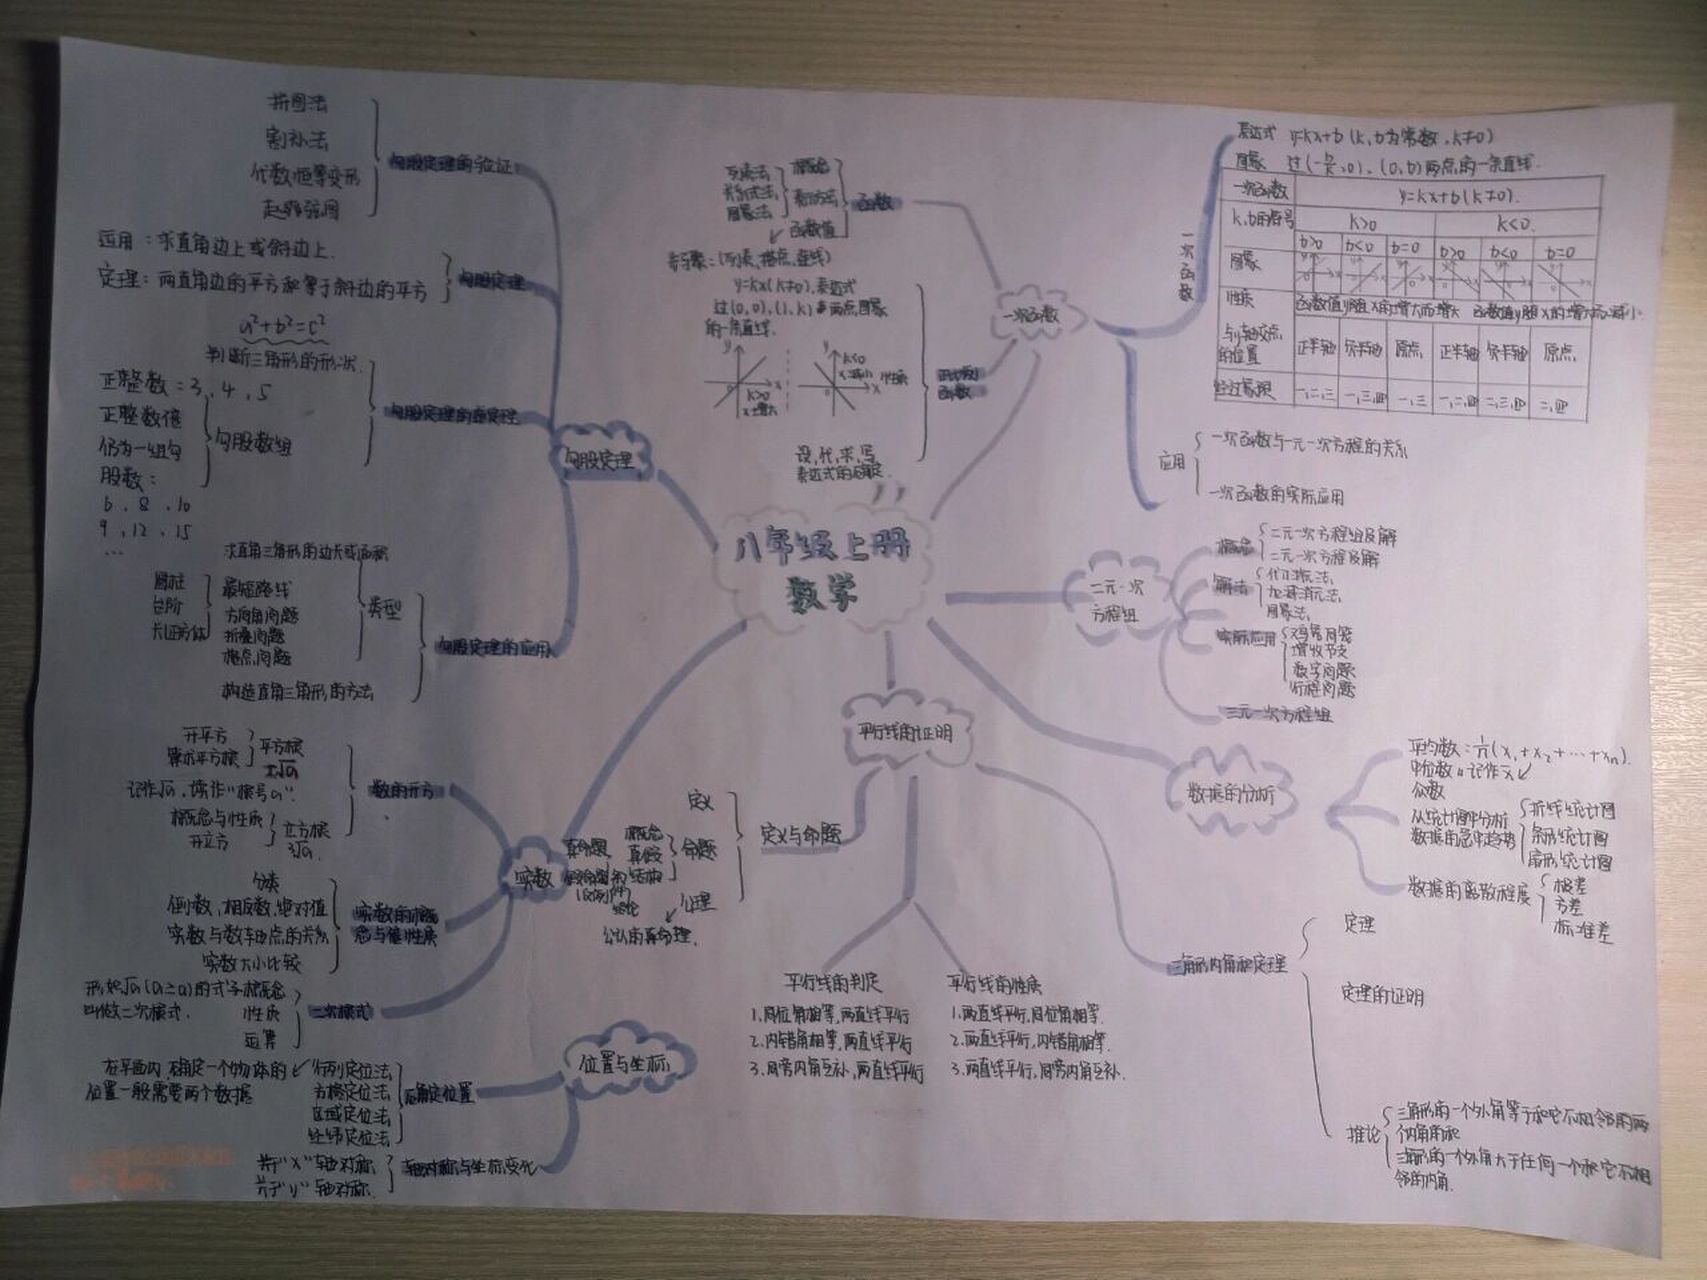 八年级上册
数学
勾股定理
勾股定理的验证
拼图法
割补法
代数恒等变形
赵爽弦图
勾股定理
运用：求直角边上或斜边上.
定理：两直角边的平方和等于斜边的平方
a²+b²=c²
判断三角形的形状.
正整数：3，4，5
正整数倍
仍为一组勾
股数：
6、8、10
9，12，15
…
勾股数组
勾股定理的应用
求直角三角形的边长或面积
圆柱
台阶
长正方体
最短路线
方向角问题
折叠问题
类型
构造直角三角形的方法
一次函数
函数
列表法
关系式法
图象法
概念
表示方法
函数值
步骤：(列表、描点、连线)
正比例
函数
y=kx(k≠0).表达式
过(0,0),(1,k)两点图象
的一条直线.
k>0
x增大
k<0
x减小
性质
设,代,求,写
一次函数
表达式 y=kx+b(k,b为常数,k≠0)
图象 过(-b/k,0)、(0,b)两点的一条直线.
一次函数 y=kx+b(k≠0).
k,b的符号 k>0 k<0.
b>0 b<0 b=0 b>0 b<0 b=0
图象
性质 函数值y随x的增大而增大 函数值y随x的增大而减小
与y轴交点
的位置 正半轴 负半轴 原点 正半轴 负半轴 原点
经过象限 一,二,三 一,三,四 一,三 一,二,四 二,三,四 二,四
应用
一次函数与一元一次方程的关系
一次函数的实际应用
二元一次
方程组
概念
二元一次方程组及解
二元一次方程及解
解法
代入消元法
加减消元法
图象法
实际应用
鸡兔同笼
增收节支
数字问题
行程问题
三元一次方程组
数据的分析
平均数：1/n(x₁+x₂+…+xn).
中位数 记作x̄
众数
从统计图中分析
数据的集中趋势
折线统计图
条形统计图
扇形统计图
数据的离散程度
极差
方差
标准差
平行线的证明
定义与命题
定义
命题
概念
真假
结构
真命题
公理
公认的真命题.
平行线的判定
1.同位角相等,两直线平行
2.内错角相等,两直线平行
3.同旁内角互补,两直线平行
平行线的性质
1.两直线平行,同位角相等.
2.两直线平行,内错角相等.
3.两直线平行,同旁内角互补.
三角形内角和定理
定理
定理的证明
推论
三角形的一个外角等于和它不相邻的两
个内角的和
三角形的一个外角大于任何一个和它不相
邻的内角.
实数
数的开方
开平方
算术平方根
平方根
±√a
记作√a,读作"根号a".
概念与性质
开立方
立方根
³√a.
实数的概
念与性质
分类
倒数,相反数,绝对值
实数与数轴点的关系
实数大小比较
二次根式
形如√a(a≥0)的式子 概念
叫做二次根式. 性质
运算
位置与坐标
确定位置
在平面内,确定一个物体的
位置一般需要两个数据
行列定位法
方格定位法
区域定位法
经纬定位法
轴对称与坐标变化
关于"x"轴对称
关于"y"轴对称.